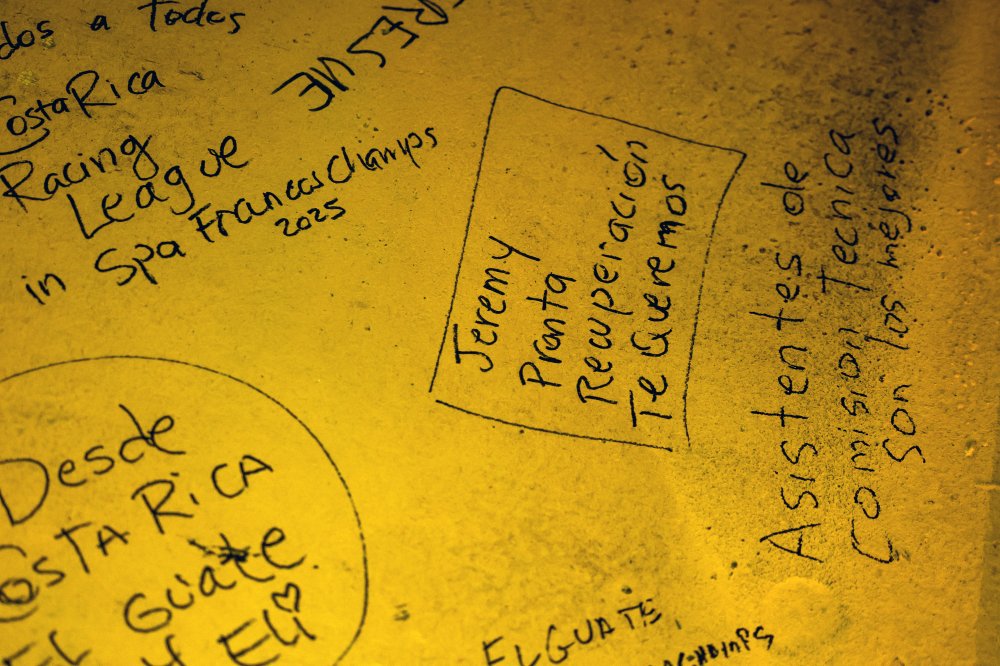 a Todos
Costa Rica
Racing
League
in Spa Francoschamps
2025
Jeremy
Pronta
Recuperación
Te Queremos
Asistentes de
Comision Tecnica
son los mejores
Desde
COSTA RICA
EL Guate
Y Eli
EL GUATE